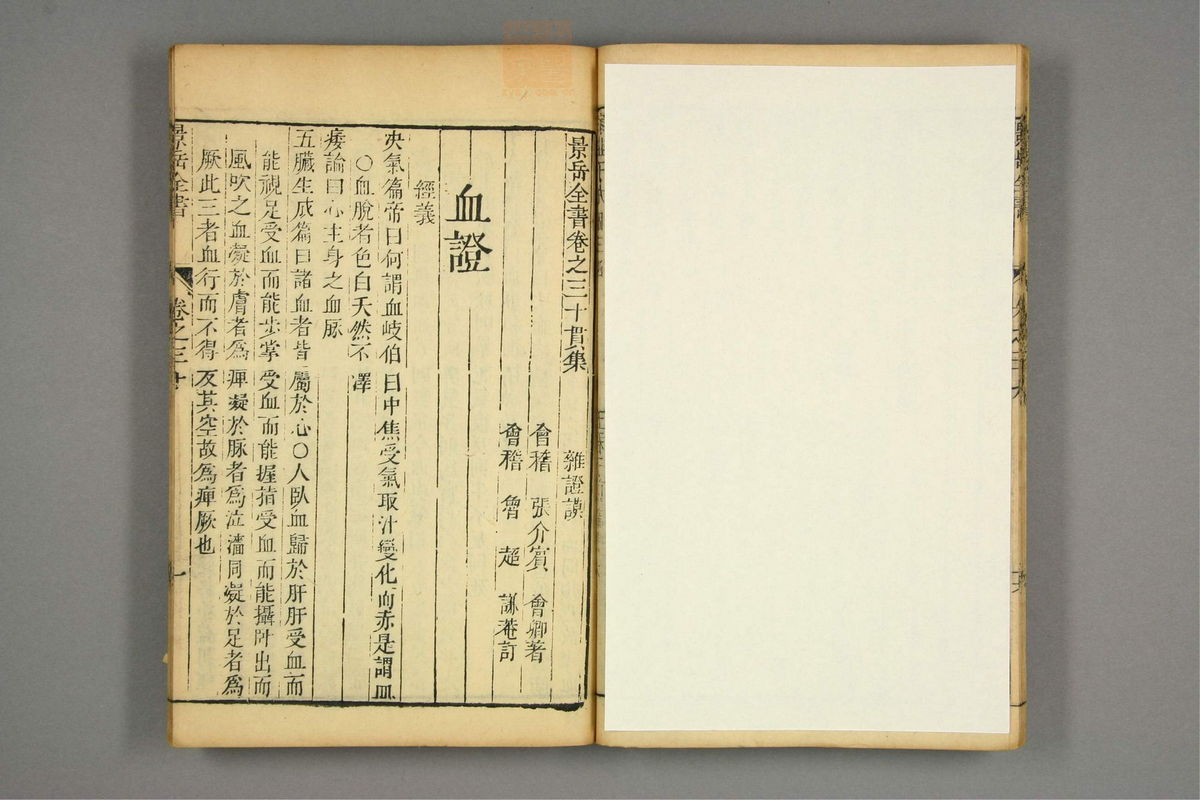 景岳全書卷之三十貫集
雜證謨
會稽 張介賓 會卿著
會稽 魯超 謙菴訂
血證
經義
決氣篇帝曰何謂血岐伯曰中焦受氣取汁變化而赤是謂血
○血脫者色白夭然不澤
痿論曰心主身之血脈
五臟生成篇曰諸血者皆屬於心○人臥血歸於肝肝受血而
能視足受血而能步掌受血而能握指受血而能攝臥出而
風吹之血凝於膚者為痺凝於脈者為泣濇同凝於足者為
厥此三者血行而不得反其空故為痺厥也
景岳全書
卷之三十
一